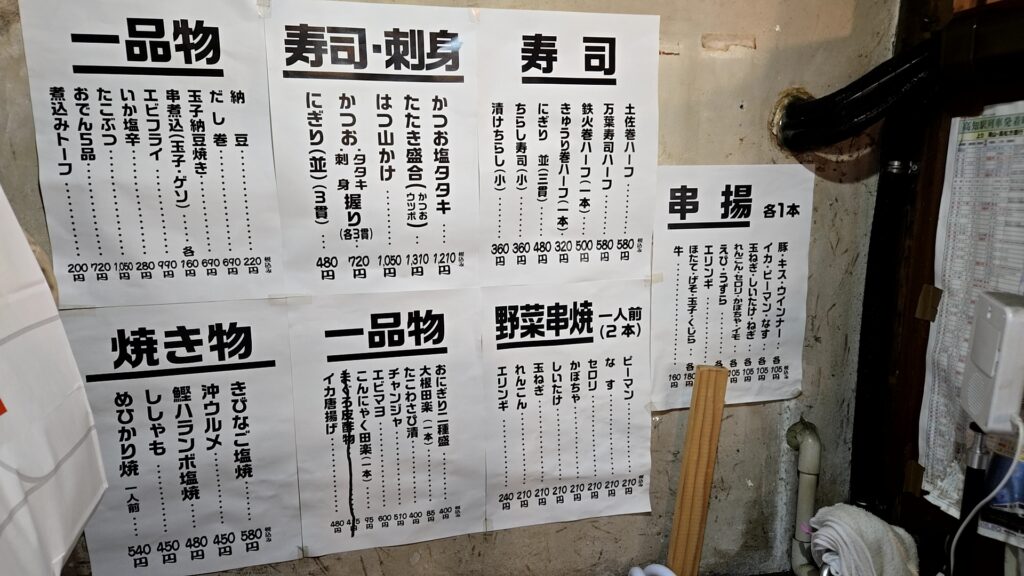 一品物
納豆 220円 税込み
だし巻 690円
玉子納豆焼き 690円
串煮込(玉子・ゲソ) 各160円
エビフライ 990円
いか塩辛 280円
たこぶつ 1,050円
おでん5品 720円
煮込みトーフ 200円
寿司・刺身
かつお塩タタキ 1,210円 税込み
たたき盛合(かつおウツボ) 1,310円
はつ山かけ 1,050円
かつお タタキ 刺身 握り(各3貫) 720円
にぎり(並)(3貫) 480円
寿司
土佐巻ハーフ 580円 税込み
万葉寿司ハーフ 580円
鉄火巻ハーフ(一本) 500円
きゅうり巻ハーフ(一本) 320円
にぎり 並(三貫) 480円
ちらし寿司(小) 360円
漬けちらし(小) 360円
串揚 各1本
豚・キス・ウインナー 各105円 税込み
イカ・ピーマン・なす 各105円
玉ねぎ・しいたけ・ねぎ 各105円
れんこん・セロリ・かぼちゃ・イモ 各105円
えび・うずら
エリンギ
ほたて・げそ・玉子・くじら 各180円
牛 160円
焼き物
きびなご塩焼 580円 税込み
沖ウルメ 450円
鰹ハランボ塩焼 480円
ししゃも 450円
めひかり焼 一人前 540円
一品物
おにぎり二種盛 400円 税込み
大根田楽(一本) 85円
たこわさび漬 400円
チャンジャ 510円
エビマヨ 600円
こんにゃく田楽(一本) 95円
イカ唐揚げ 480円
野菜串焼 一人前(2本)
ピーマン 210円 税込み
なす 210円
セロリ 210円
かぼちゃ 210円
しいたけ 210円
玉ねぎ 210円
れんこん 210円
エリンギ 240円